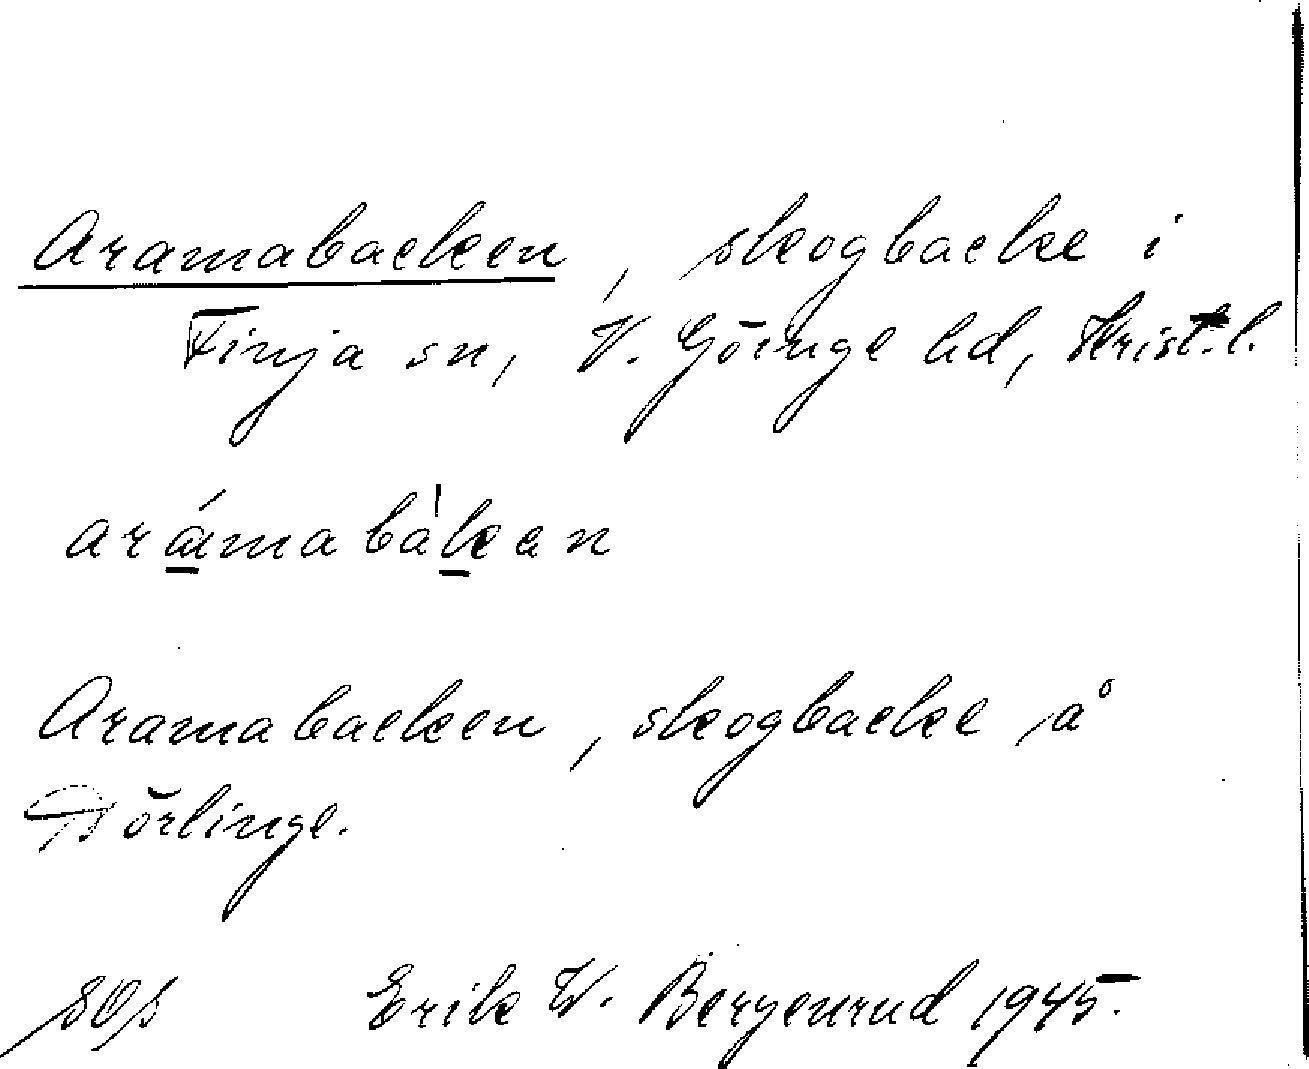 Aramabacken, skogbacke i
Finja sn, V. Göinge hd, Krist. l.
Aramabacken, skogbacke på
Dörlinge.
Erik W. Bergenrud 1945.